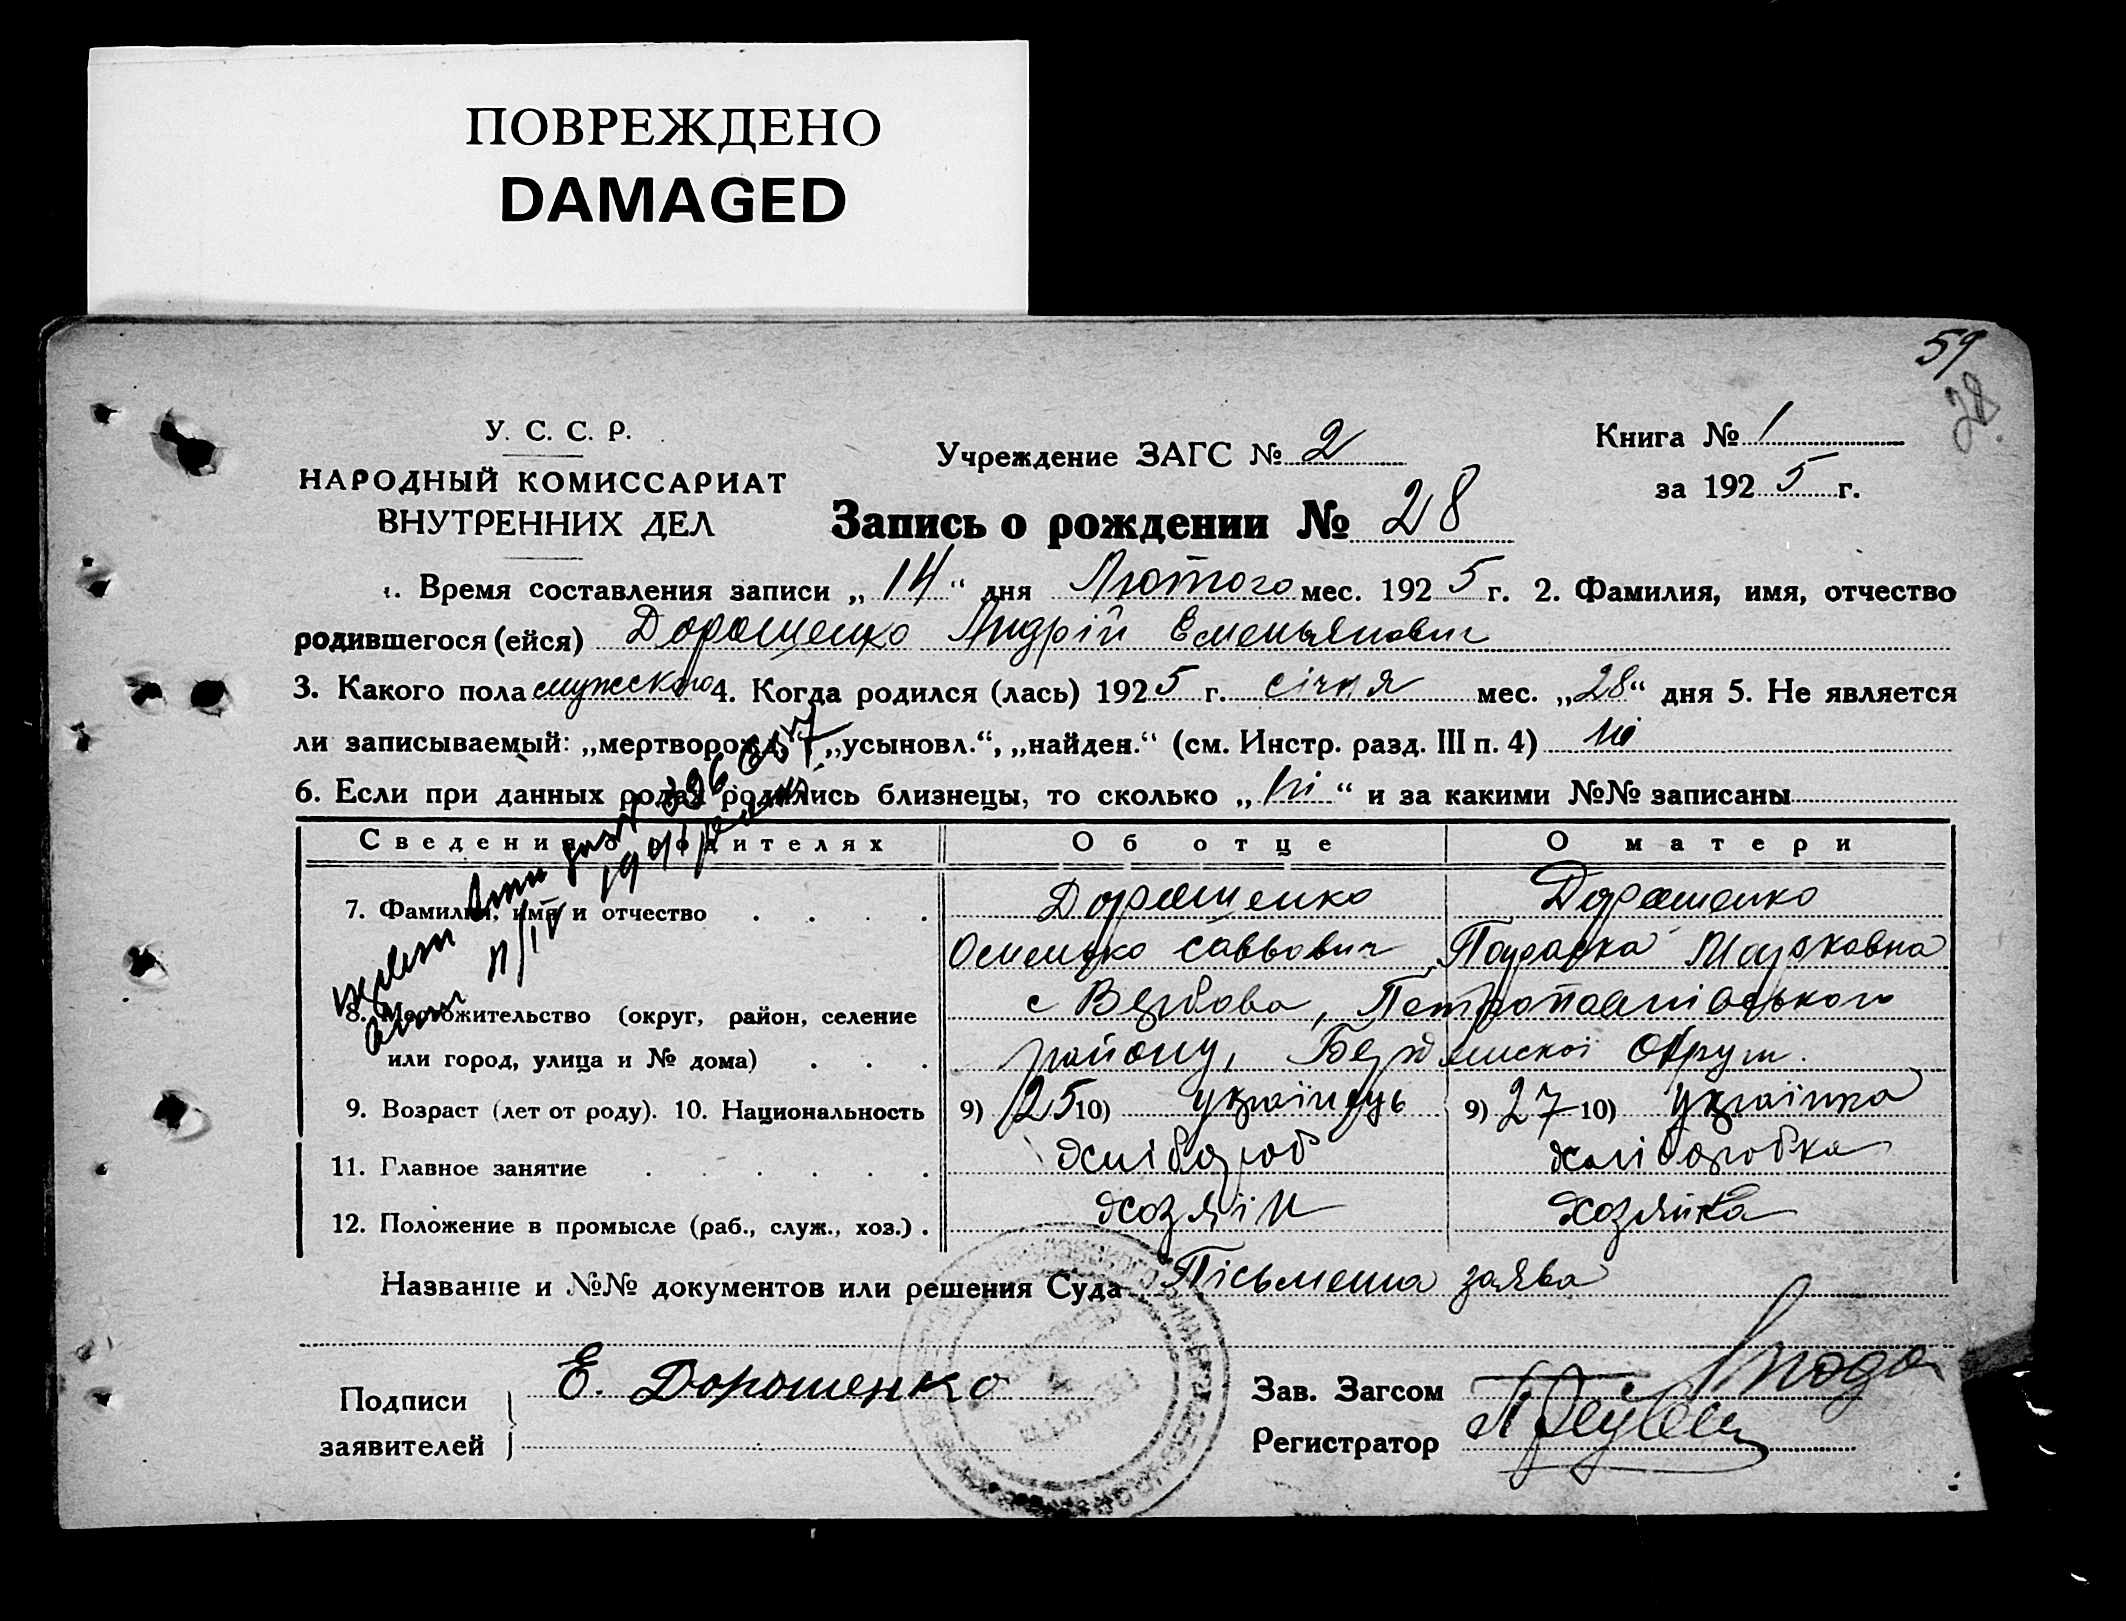 ПОВРЕЖДЕНО
DAMAGED
59
28.
У. С. С. Р.
НАРОДНЫЙ КОМИССАРИАТ
ВНУТРЕННИХ ДЕЛ
Учреждение ЗАГС № 2
Книга № 1
за 1925 г.
Запись о рождении № 28
1. Время составления записи „14“ дня Лютого мес. 1925 г. 2. Фамилия, имя, отчество
родившегося (ейся) Дорошенко Андрій Емельянович
3. Какого пола мужского 4. Когда родился (лась) 1925 г. січня мес. „28“ дня 5. Не является
ли записываемый: „мертворожд.“, „усыновл.“, „найден.“ (см. Инстр. разд. III п. 4) ні
6. Если при данных родах родились близнецы, то сколько „ні“ и за какими №№ записаны
Сведения о родителях Об отце О матери
7. Фамилия, имя и отчество Дорошенко Дорошенко
Омелько Саввович Параска Марковна
8. Местожительство (округ, район, селение с Вербова, Петропавлівського
или город, улица и № дома) району, Бердянскої Округи.
9. Возраст (лет от роду). 10. Национальность 9) 25 10) українець 9) 27 10) українка
11. Главное занятие хлібороб хліборобка
12. Положение в промысле (раб., служ., хоз.) хозяін хозяйка
Название и №№ документов или решения Суда Пісьмена заява
Подписи заявителей Е. Дорошенко
Зав. Загсом
Регистратор